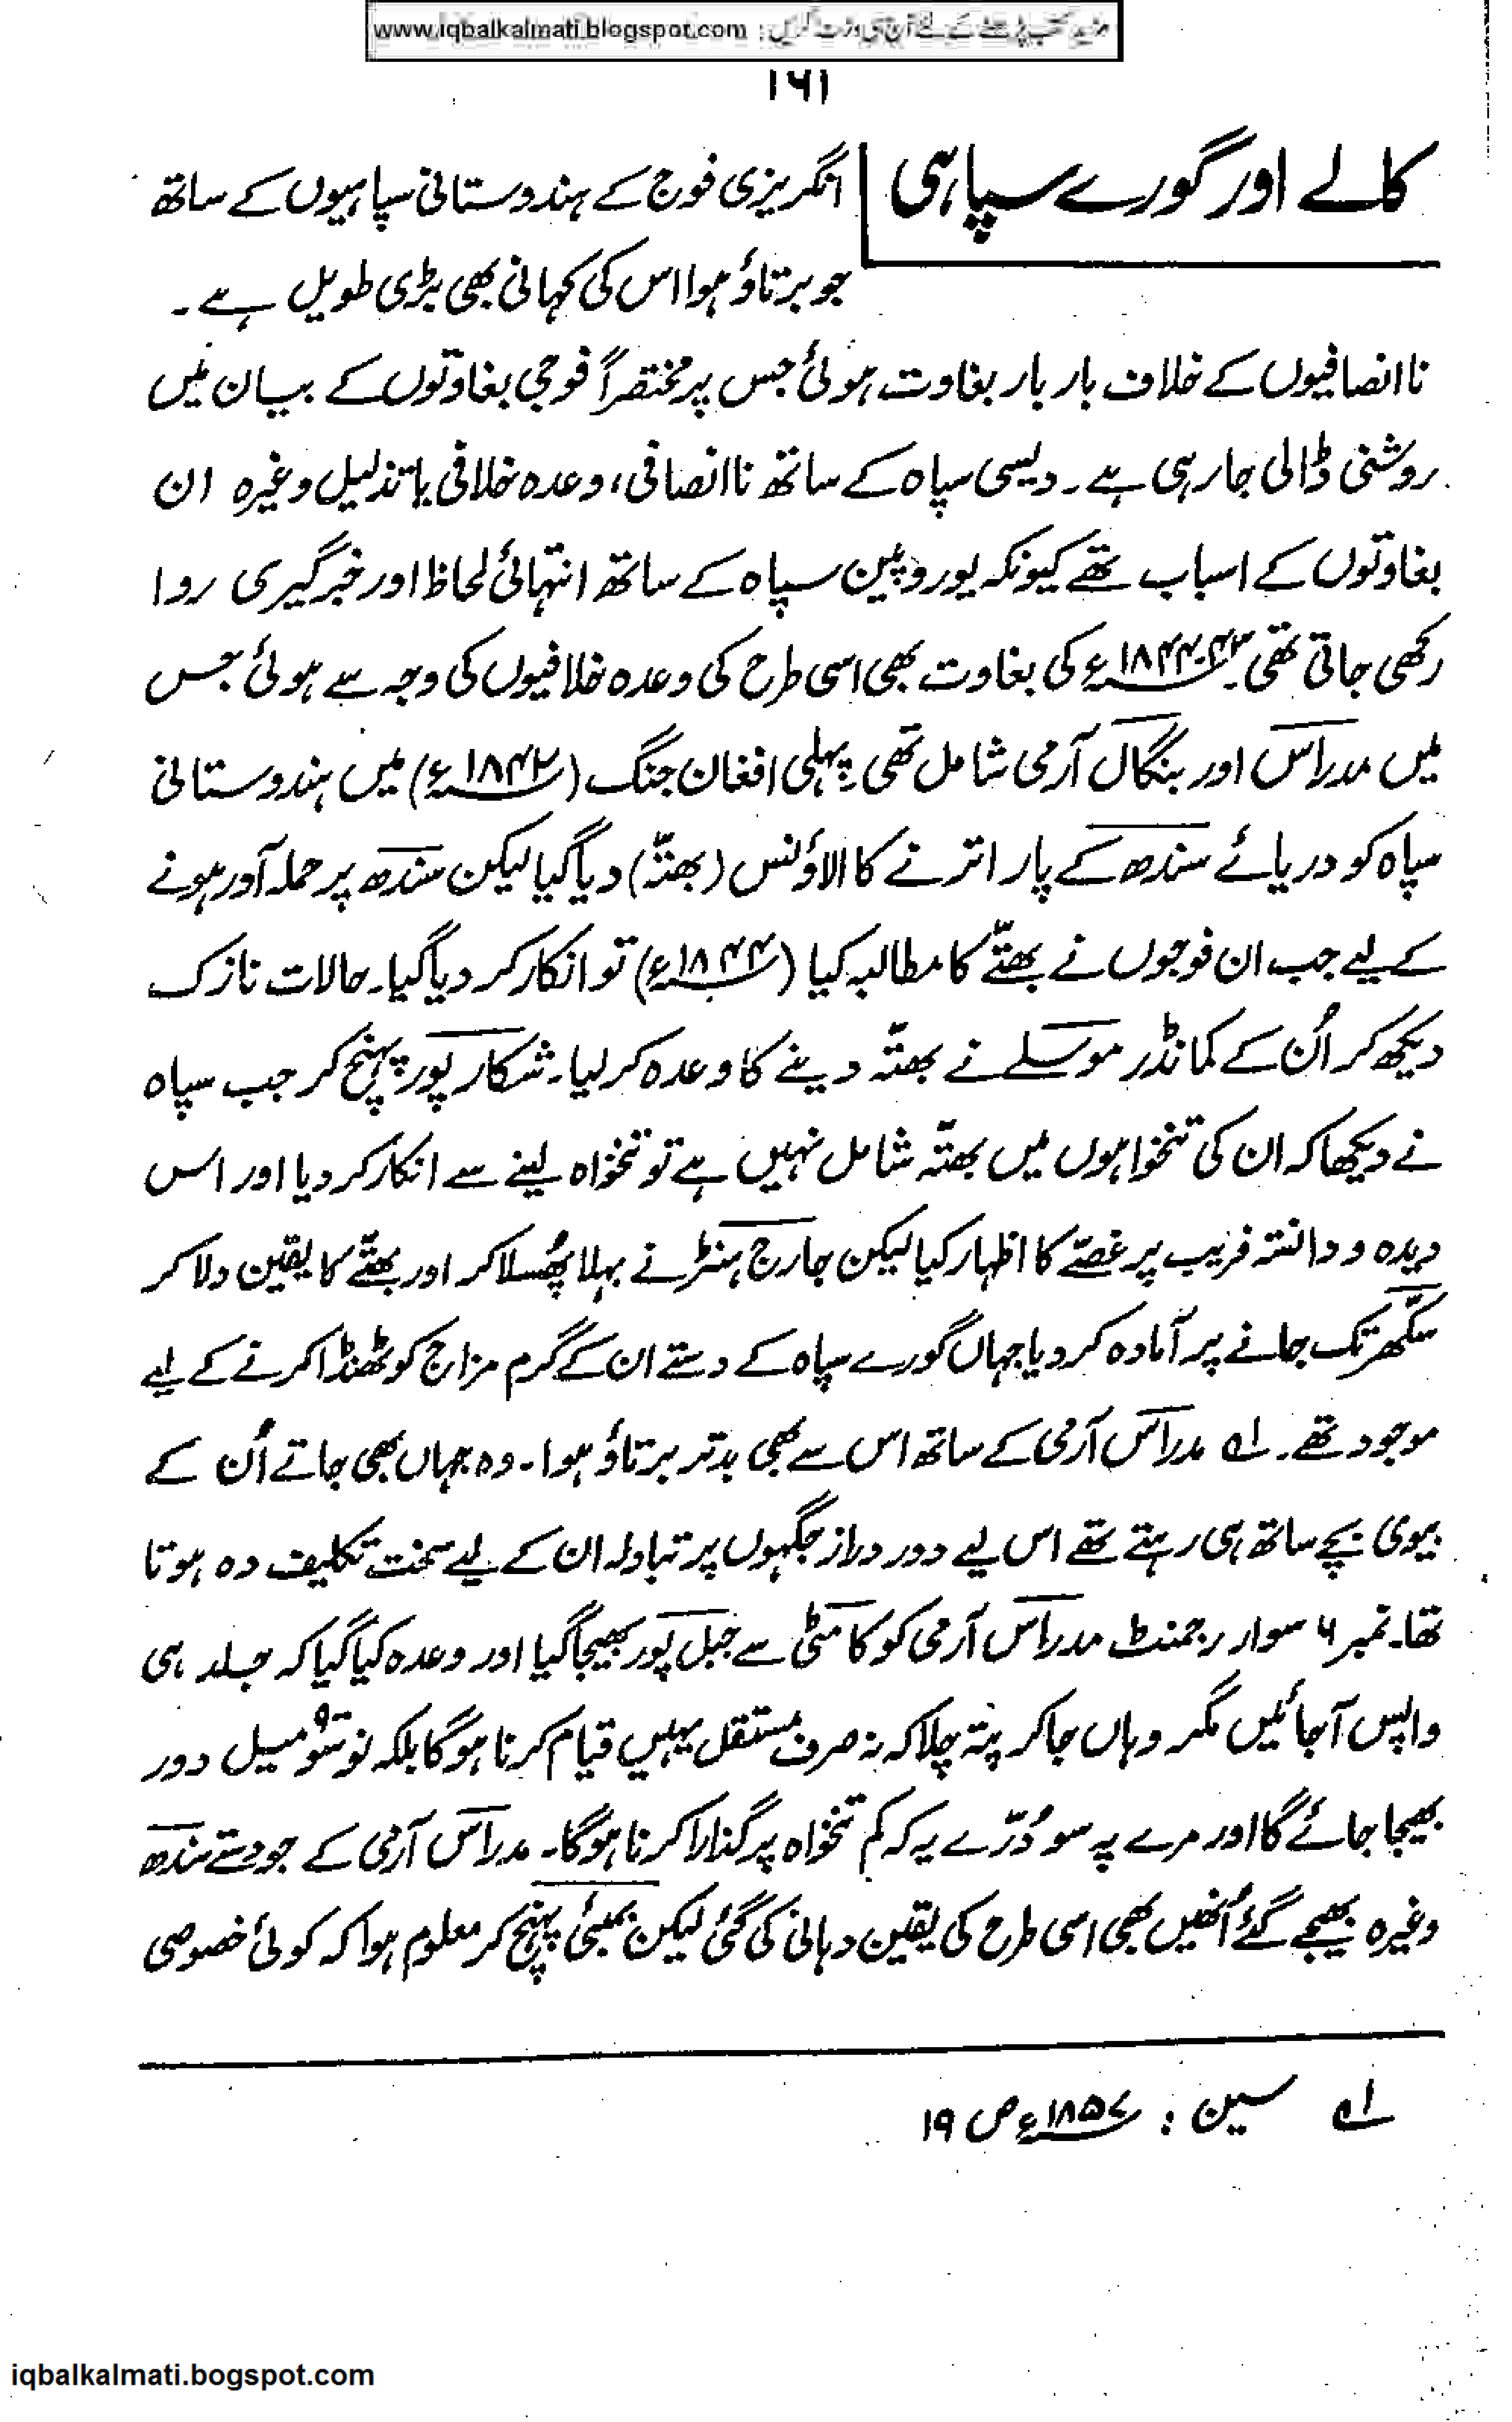 مزید کتب پڑھنے کے لئے آج ہی وزٹ کریں : www.iqbalkalmati.blogspot.com
۱۶۱
کالے اور گورے سپاہی
انگریزی فوج کے ہندوستانی سپاہیوں کے ساتھ
جو برتاؤ ہوا اس کی کہانی بھی بڑی طویل ہے۔
ناانصافیوں کے خلاف بار بار بغاوت ہوئی جس پر مختصراً فوجی بغاوتوں کے بیان میں
روشنی ڈالی جارہی ہے۔ دیسی سپاہ کے ساتھ ناانصافی، وعدہ خلافی یا تذلیل وغیرہ ان
بغاوتوں کے اسباب تھے کیونکہ یوروپین سپاہ کے ساتھ انتہائی لحاظ اور خبرگیری روا
رکھی جاتی تھی۔ ۴۳-۱۸۴۴ء کی بغاوت بھی اسی طرح کی وعدہ خلافیوں کی وجہ سے ہوئی جس
میں مدراس اور بنگال آرمی شامل تھی۔ پہلی افغان جنگ (۱۸۴۲ء) میں ہندوستانی
سپاہ کو دریائے سندھ کے پار اترنے کا الاؤنس (بھتّہ) دیا گیا لیکن سندھ پر حملہ آور ہونے
کے لیے جب ان فوجوں نے بھتّے کا مطالبہ کیا (۱۸۴۴ء) تو انکار کر دیا گیا۔ حالات نازک
دیکھ کر اُن کے کمانڈر موسلے نے بھتّہ دینے کا وعدہ کر لیا۔ شکارپور پہنچ کر جب سپاہ
نے دیکھا کہ ان کی تنخواہوں میں بھتّہ شامل نہیں ہے تو تنخواہ لینے سے انکار کر دیا اور اس
دیدہ و دانستہ فریب پر غصّے کا اظہار کیا لیکن جارج ہنٹر نے بہلا پھُسلا کر اور بھتّے کا یقین دلا کر
سکّھر تک جانے پر آمادہ کر دیا جہاں گورے سپاہ کے دستے ان کے گرم مزاج کو ٹھنڈا کرنے کے لیے
موجود تھے۔ لہ مدراس آرمی کے ساتھ اس سے بھی بدتر برتاؤ ہوا۔ وہ جہاں بھی جاتے اُن کے
بیوی بچے ساتھ ہی رہتے تھے اس لیے دور دراز جگہوں پر تبادلہ ان کے لیے سخت تکلیف دہ ہوتا
تھا۔ نمبر ۶ سوار رجمنٹ مدراس آرمی کو کامٹی سے جبل پور بھیجا گیا اور وعدہ کیا گیا کہ جلد ہی
واپس آجائیں مگر وہاں جا کر پتہ چلا کہ نہ صرف مستقل یہیں قیام کرنا ہوگا بلکہ نو سَو میل دور
بھیجا جائے گا اور مرے پہ سو دُرّے یہ کہ کم تنخواہ پر گذارا کرنا ہوگا۔ مدراس آرمی کے جو دستے سندھ
وغیرہ بھیجے گئے اُنھیں بھی اسی طرح کی یقین دہانی کی گئی لیکن بمبئی پہنچ کر معلوم ہوا کہ کوئی خصوصی
لہ سین : ۱۸۵۷ء ص ۱۹
iqbalkalmati.bogspot.com